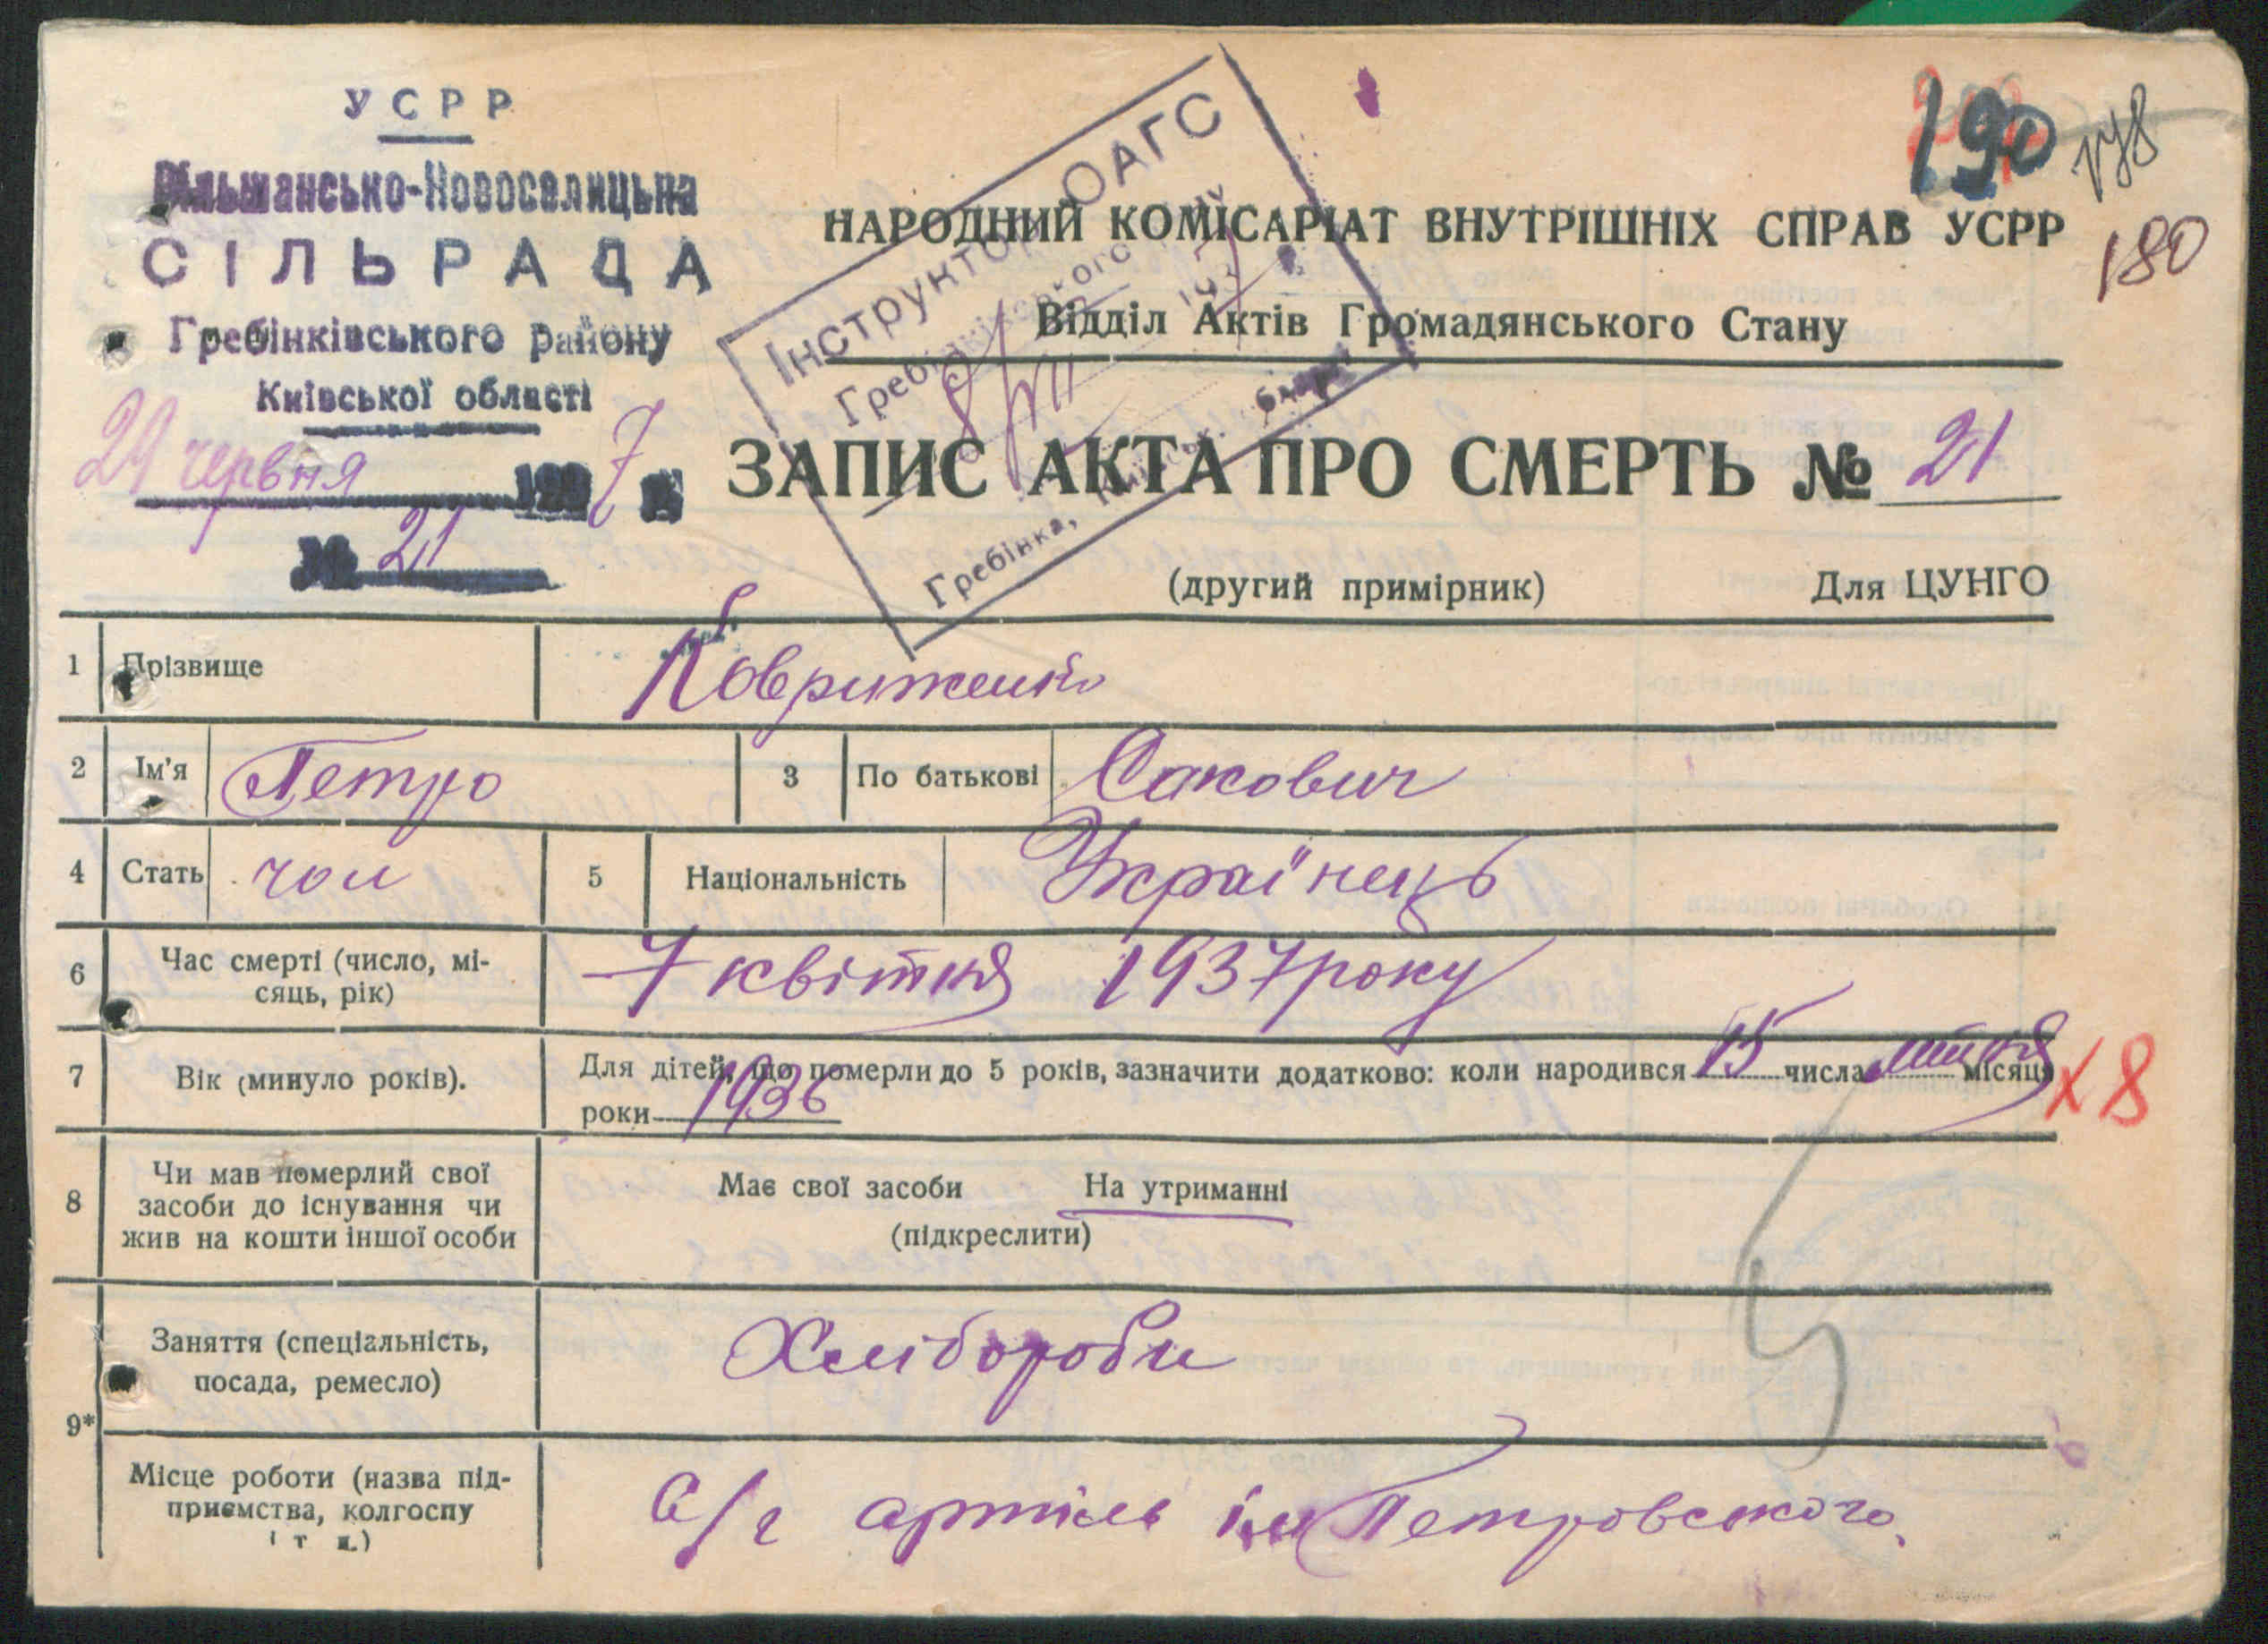 УСРР
Вільшансько-Новоселицька
СІЛЬРАДА
Гребінківського району
Київської області
29 червня 1937 р.
№ 21
Інструктор ОАГС
Гребінківського
193
8/VII
Гребінка, Київськ.
190
178
180
НАРОДНИЙ КОМІСАРІАТ ВНУТРІШНІХ СПРАВ УСРР
Відділ Актів Громадянського Стану
ЗАПИС АКТА ПРО СМЕРТЬ № 21
(другий примірник) Для ЦУНГО
1 Прізвище Ковриженко
2 Ім'я Петро 3 По батькові Сакович
4 Стать чол 5 Національність Українець
6 Час смерті (число, мі-
сяць, рік) 7 квітня 1937 року
7 Вік (минуло років). Для дітей, що померли до 5 років, зазначити додатково: коли народився 15 числа липня місяця
роки 1936
х 8
8 Чи мав померлий свої
засоби до існування чи
жив на кошти іншої особи
Має свої засоби На утриманні
(підкреслити)
9* Заняття (спеціальність,
посада, ремесло) Хлібороби
Місце роботи (назва під-
приємства, колгоспу
і т д.) с/г артіль ім Петровського.
5